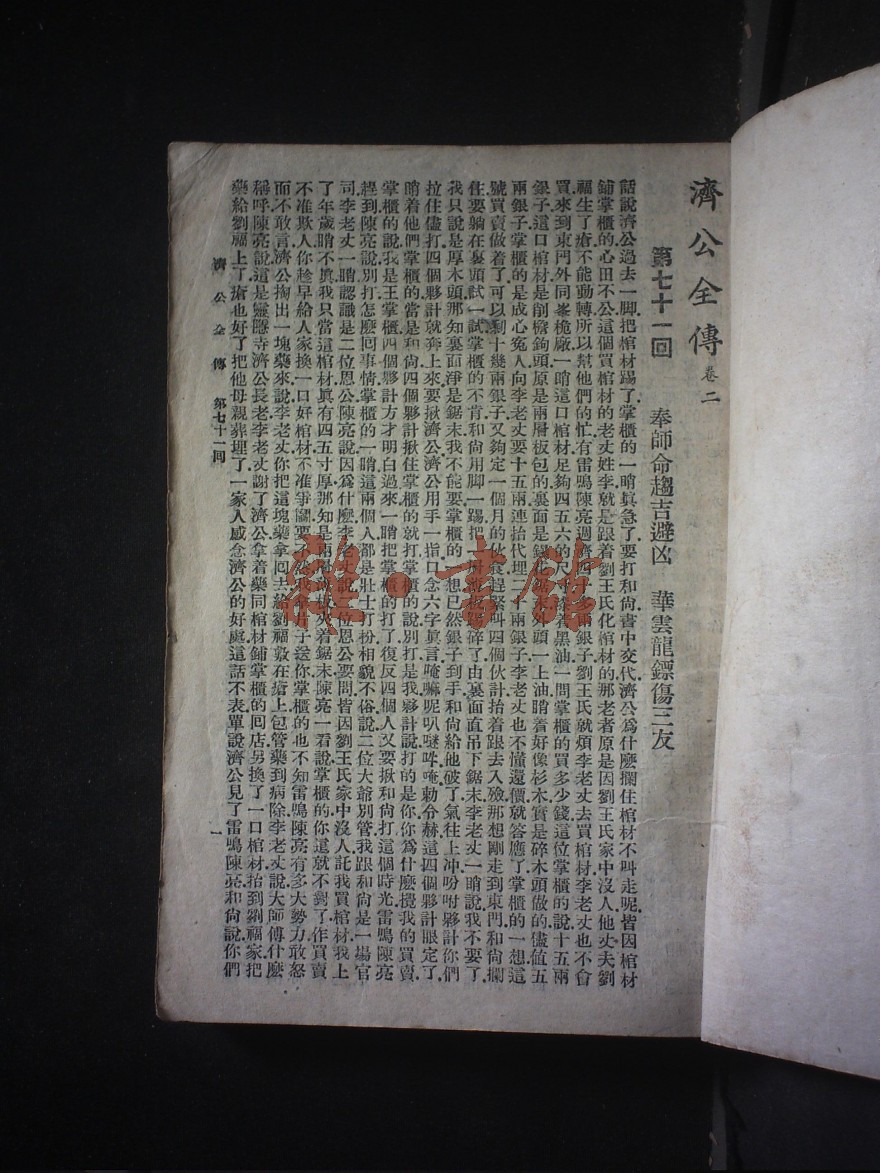 濟公全傳 卷二
第七十一回 奉師命趨吉避凶 華雲龍鏢傷三友
話說濟公過去一脚把棺材踢了掌櫃的一瞧眞急了要打和尙書中交代濟公爲什麽攔住棺材不叫走呢皆因棺材
鋪掌櫃的心田不公這個買棺材的老丈姓李就是跟着劉王氏化棺材的那老者原是因劉王氏家中沒人他丈夫劉
福生了瘡不能動轉所以幫他們的忙有雷鳴陳亮週濟四十兩銀子劉王氏就煩李老丈去買棺材李老丈也不會
買來到東門外同峯桅廠一瞧這口棺材足夠四五六的尺寸擦着黑油一問掌櫃的買多少錢這位掌櫃的說十五兩
銀子這口棺材是前𢊍鉤頭原是兩層板包的裏面是鋸末外頭一上油瞧着好像杉木實是碎木頭做的儘値五
兩銀子掌櫃的是成心寃人向李老丈要十五兩連抬代埋二十兩銀子李老丈也不懂還價就答應了掌櫃的一想這
號買賣做着了可以剩十幾兩銀子又夠定一個月的伙食趕緊叫四個伙計抬着跟去入殮那想剛走到東門和尙攔
住要躺在裏頭試一試掌櫃的不肯和尙用脚一踢把一層薄板踢碎了由裏面直吊下鋸末李老丈一瞧說我不要了
我只說是厚木頭那知裏面淨是鋸末我不能要掌櫃的一想已然銀子到手和尙給他破了氣往上沖吩咐夥計你們
拉住儘打四個夥計就奔上來要揪濟公濟公用手一指口念六字眞言唵嘛呢叭𠺗吽唵勅分赫這四個夥計眼定了
瞧着他們掌櫃的當是和尙四個夥計揪住掌櫃的就打掌櫃的說別打是我夥計說打的是你你爲什麽攪我的買賣
掌櫃的說我是王掌櫃四個夥計方才明白過來一瞧把掌櫃的打了復反四個人又要揪和尙打這個時光雷鳴陳亮
趕到陳亮說別打怎麽回事情掌櫃的一瞧這兩個人都是壯士打扮相貌不俗說二位大爺別管我跟和尙是一場官
司李老丈一瞧認識是二位恩公陳亮說因爲什麽李老丈說二位恩公要問皆因劉王氏家中沒人託我買棺材我上
了年歲瞧不眞我只當這棺材眞有四五寸厚那知是兩層薄板夾着鋸末陳亮一看說掌櫃的你這就不對了作買賣
不准欺人你趁早給人家換一口好棺材不准爭鬭要不然我拿片子送你掌櫃的也不知雷鳴陳亮有多大勢力敢怒
而不敢言濟公掏出一塊藥來說李老丈你把這塊藥拿回去給劉福敷在瘡上包管藥到病除李老丈說大師傅什麽
稱呼陳亮說這是靈隱寺濟公長老李老丈謝了濟公拿着藥同棺材鋪掌櫃的回店另換了一口棺材抬到劉福家把
藥給劉福上了瘡也好了把他母親葬埋了一家人感念濟公的好處這話不表單說濟公見了雷鳴陳亮和尙說你們
濟公全傳 第七十一回 一
雜·書館